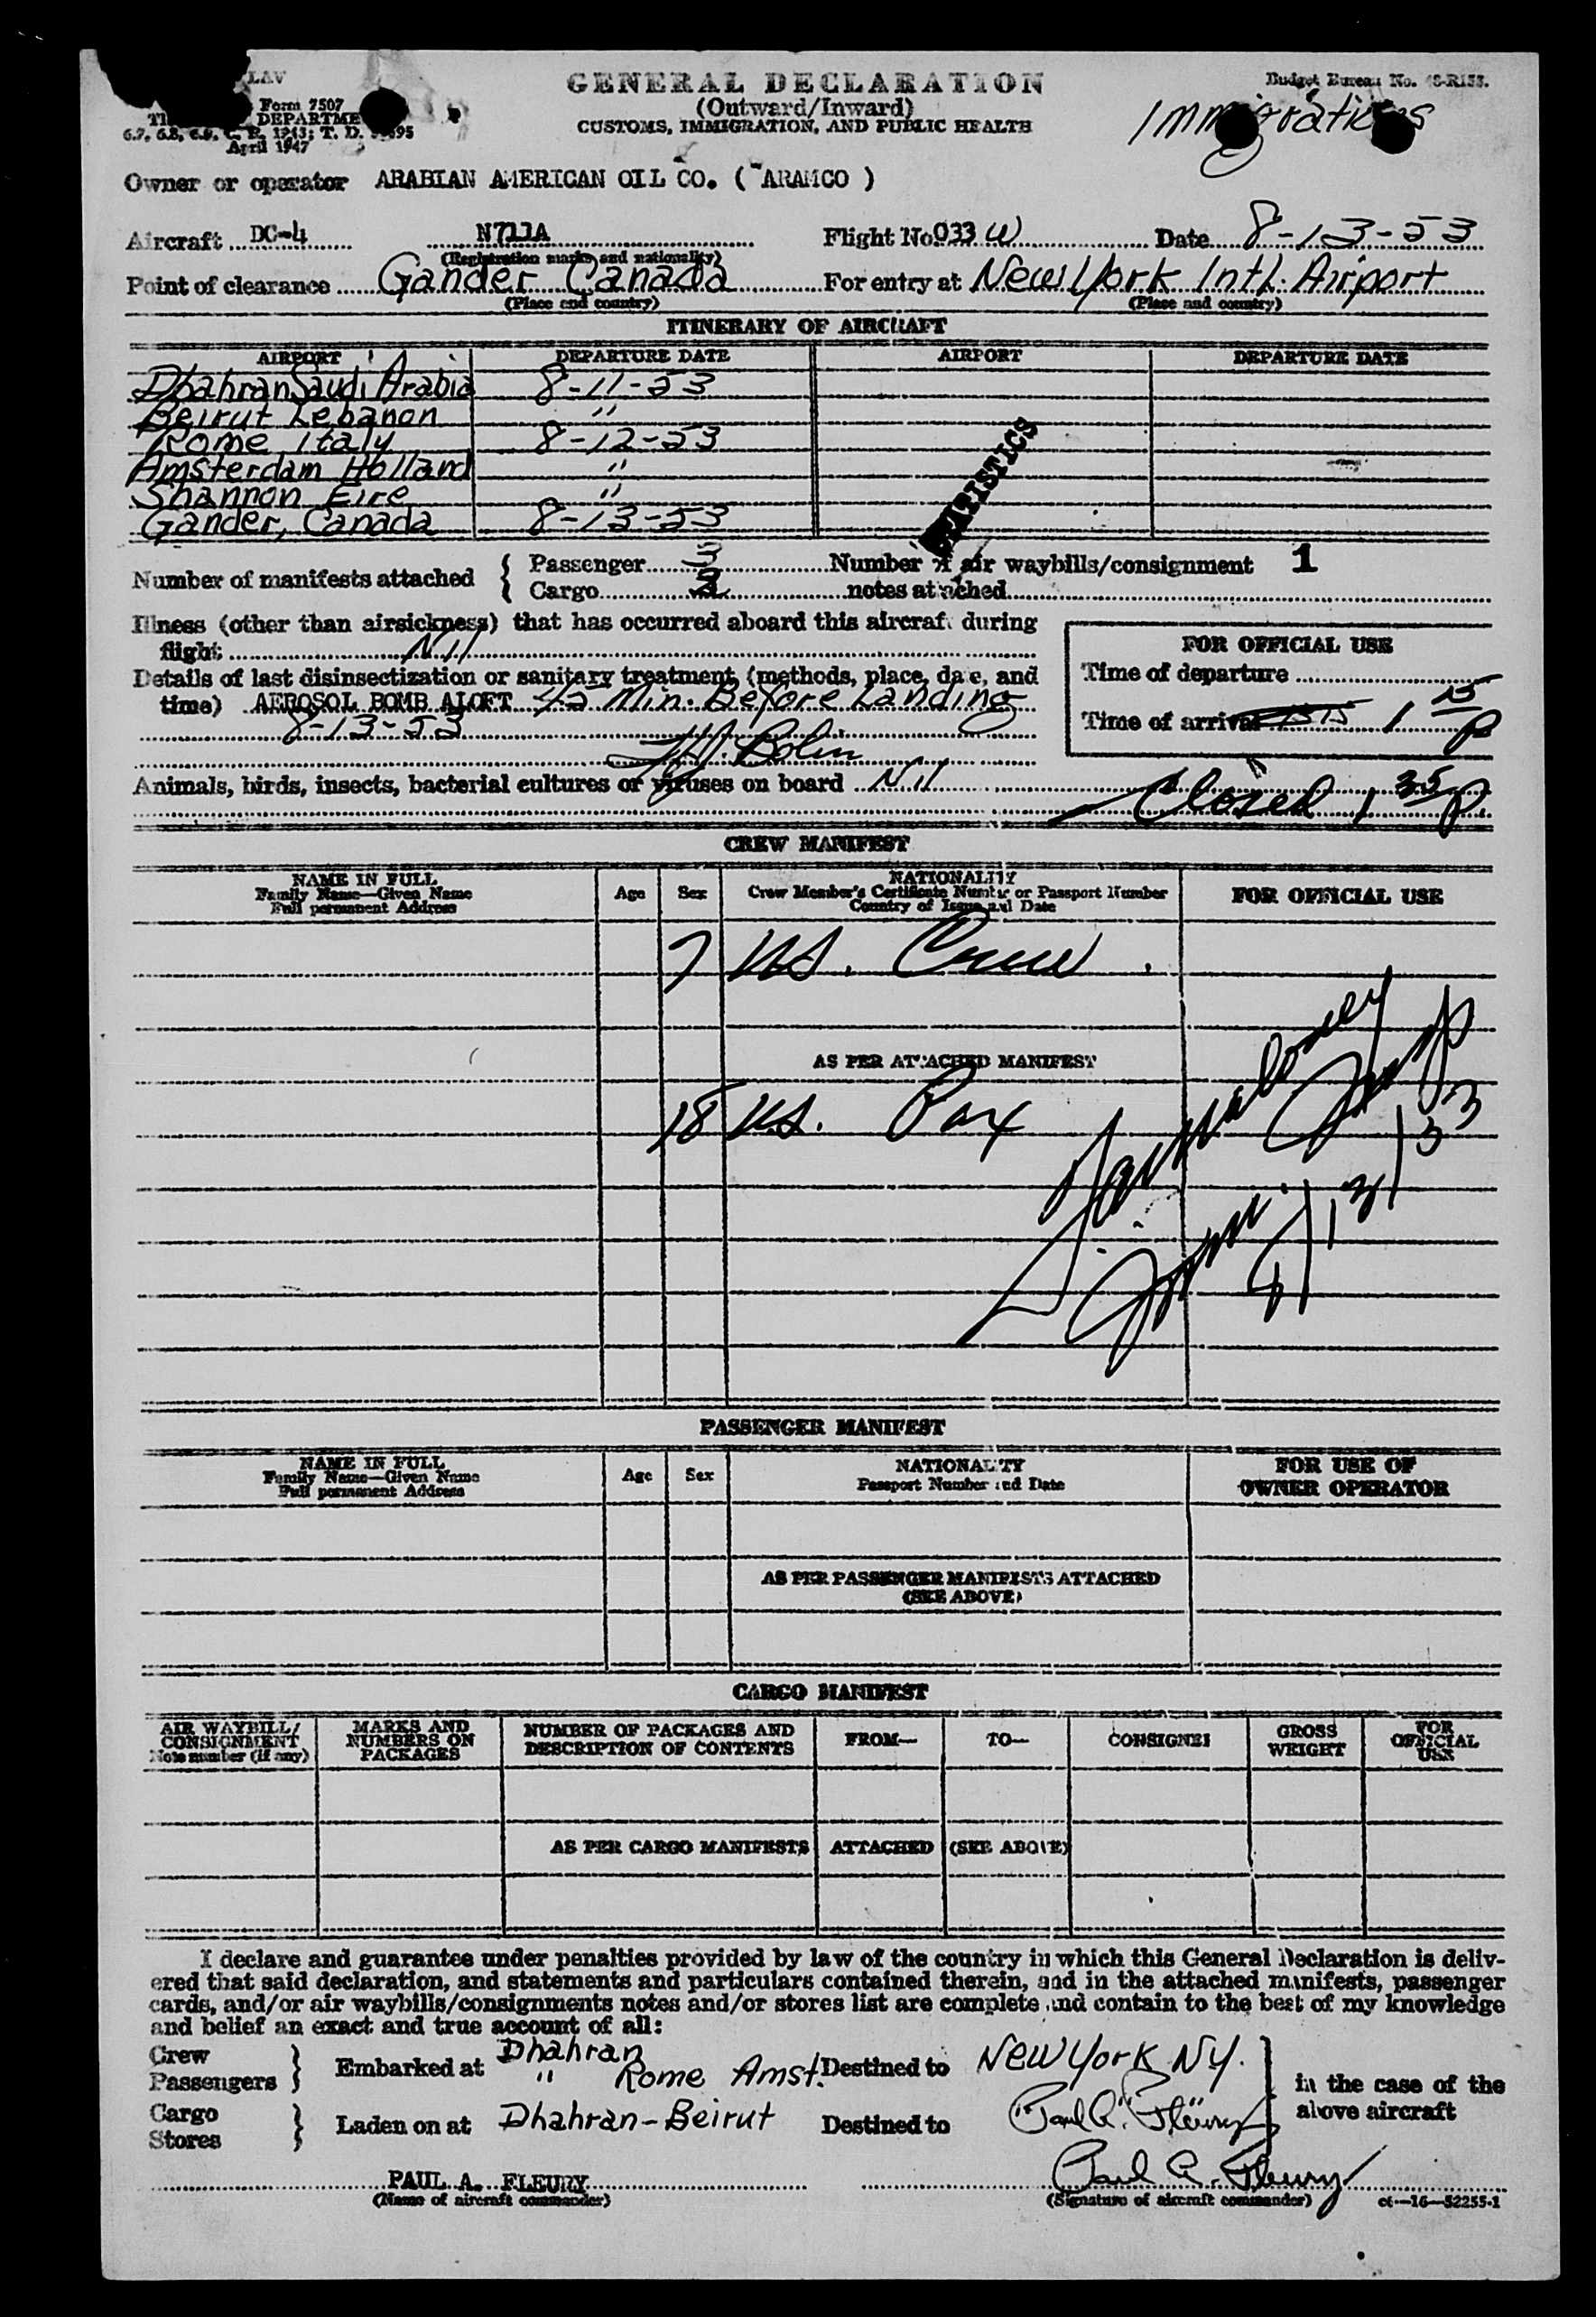 LAV
GENERAL DECLARATION
Budget Bureau No. 48-R133.
Form 7507
(Outward/Inward)
DEPARTME
CUSTOMS, IMMIGRATION, AND PUBLIC HEALTH
Immigrations
6.7, 6.8, 6.9, C. R. 1943; T. D.
April 1947
Owner or operator ARABIAN AMERICAN OIL CO. ( ARAMCO )
Aircraft DC-4 N711A Flight No. 033 W Date 8-13-53
(Registration marks and nationality)
Point of clearance Gander Canada For entry at New York Intl. Airport
(Place and country) (Place and country)
ITINERARY OF AIRCRAFT
AIRPORT DEPARTURE DATE AIRPORT DEPARTURE DATE
Dhahran Saudi Arabia 8-11-53
Beirut Lebanon "
Rome Italy 8-12-53
Amsterdam Holland "
Shannon Eire "
Gander, Canada 8-13-53
STATISTICS
Number of manifests attached { Passenger 3 Number of air waybills/consignment 1
Cargo 2 notes attached
Illness (other than airsickness) that has occurred aboard this aircraft during
flight Nil
FOR OFFICIAL USE
Details of last disinsectization or sanitary treatment (methods, place, date, and
Time of departure
time) AEROSOL BOMB ALOFT 45 Min. Before Landing
8-13-53
Time of arrival 1 15 P
Animals, birds, insects, bacterial cultures or viruses on board Nil
Closed 1 35 P.
CREW MANIFEST
NAME IN FULL
Family Name—Given Name
Full permanent Address
Age Sex
NATIONALITY
Crew Member's Certificate Number or Passport Number
Country of Issue and Date
FOR OFFICIAL USE
7 US. Crew.
AS PER ATTACHED MANIFEST
18 U.S. Pax
PASSENGER MANIFEST
NAME IN FULL
Family Name—Given Name
Full permanent Address
Age Sex
NATIONALITY
Passport Number and Date
FOR USE OF
OWNER OPERATOR
AS PER PASSENGER MANIFESTS ATTACHED
(SEE ABOVE)
CARGO MANIFEST
AIR WAYBILL/
CONSIGNMENT
Note number (if any)
MARKS AND
NUMBERS ON
PACKAGES
NUMBER OF PACKAGES AND
DESCRIPTION OF CONTENTS
FROM—
TO—
CONSIGNEE
GROSS
WEIGHT
FOR
OFFICIAL
USE
AS PER CARGO MANIFESTS ATTACHED (SEE ABOVE)
I declare and guarantee under penalties provided by law of the country in which this General Declaration is deliv-
ered that said declaration, and statements and particulars contained therein, and in the attached manifests, passenger
cards, and/or air waybills/consignments notes and/or stores list are complete and contain to the best of my knowledge
and belief an exact and true account of all:
Crew
Passengers } Embarked at Dhahran
" Rome Amst. Destined to New York NY.
in the case of the
above aircraft
Cargo
Stores } Laden on at Dhahran-Beirut Destined to "Paul A. Fleury"
PAUL A. FLEURY Paul A. Fleury
(Name of aircraft commander) (Signature of aircraft commander) c6—16—52255-1